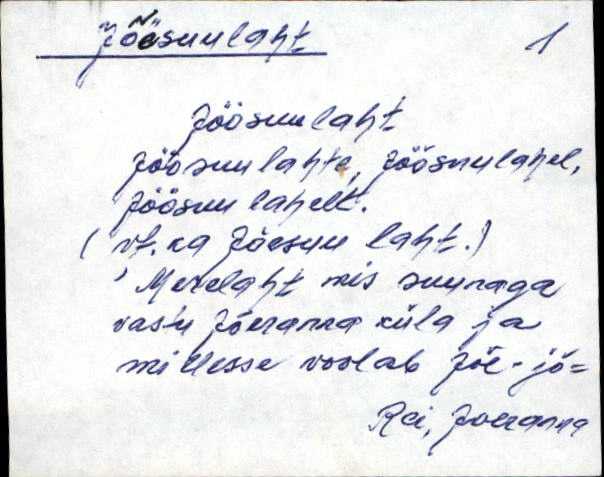 Jõesuulaht 1
Jõõsuulaht
Jõõsuulahte, Jõõsuulahel,
Jõõsuulahelt.
(vt. ka Jõesuu laht.)
' Merelaht mis suunaga
vastu Jõeranna küla ja
millesse voolab Jõe-jõ=
Rei, Jõeranna